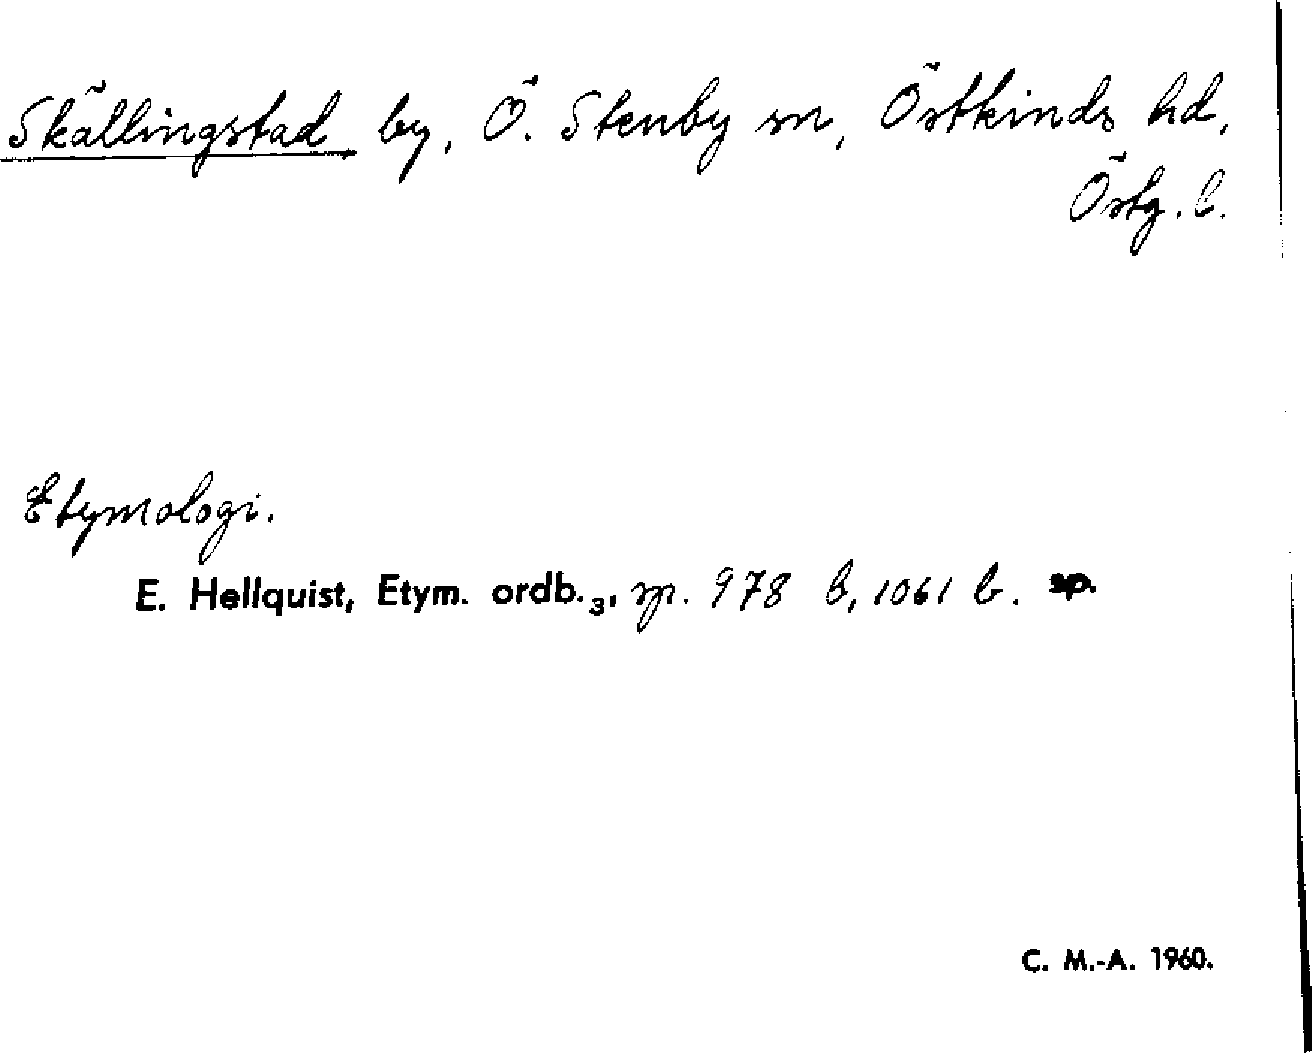 Skällingstad by, Ö. Stenby sn, Östkinds hd,
Östg. l.
Etymologi.
E. Hellquist, Etym. ordb.₃, sp. 978 b, 1061 b. sp.
C. M.-A. 1960.